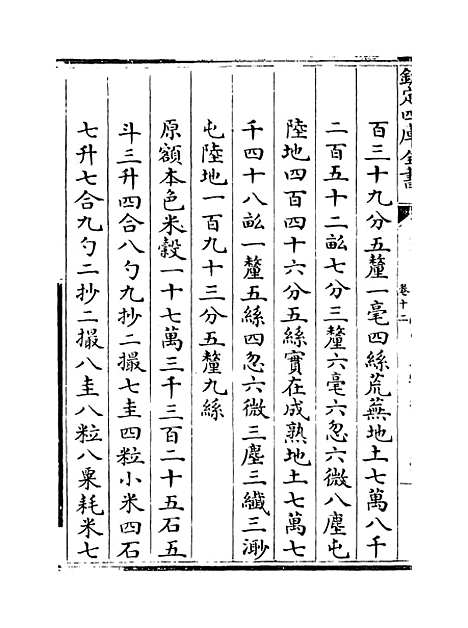 欽定四庫全書
卷十二
百三十九分五釐一毫四絲荒蕪地土七萬八千
二百五十二畝七分三釐六毫六忽六微八塵屯
陸地四百四十六分五絲實在成熟地土七萬七
千四十八畝一釐五絲四忽六微三塵三纖三渺
屯陸地一百九十三分五釐九絲
原額本色米穀一十七萬三千三百二十五石五
斗三升四合八勺九抄二撮七圭四粒小米四石
七升七合九勺二抄二撮八圭八粒八粟耗米七